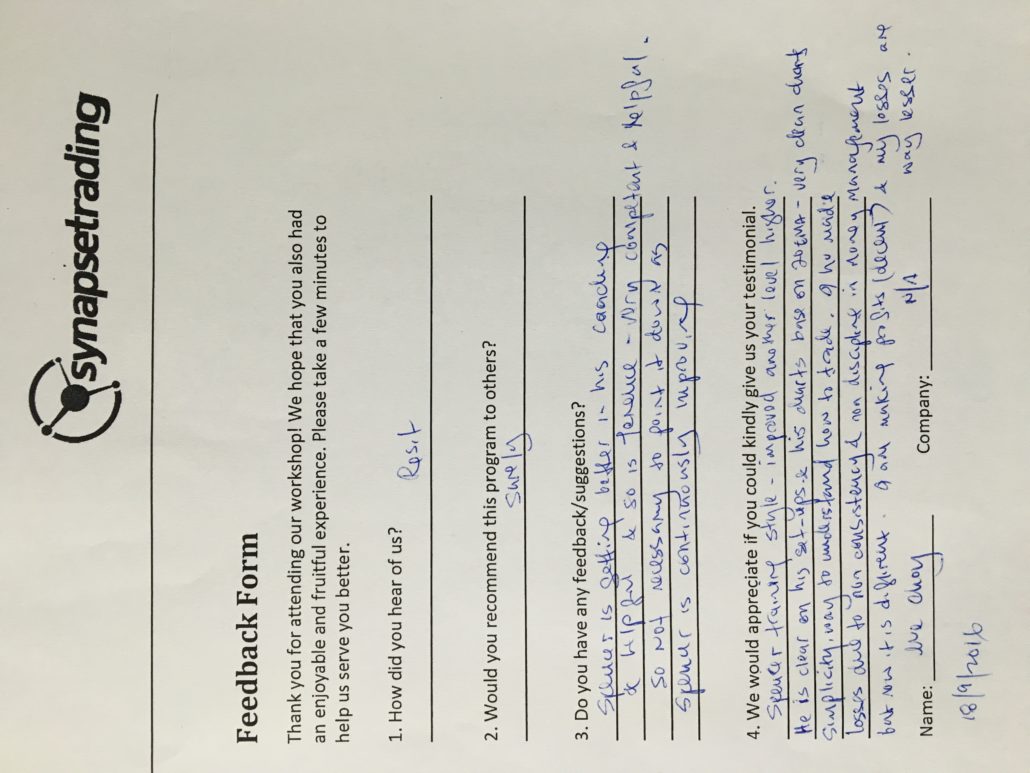 synapsetrading
Feedback Form
Thank you for attending our workshop! We hope that you also had
an enjoyable and fruitful experience. Please take a few minutes to
help us serve you better.
1. How did you hear of us?
Resit
2. Would you recommend this program to others?
Surely
3. Do you have any feedback/suggestions?
Spencer is getting better in his coaching
& helpful & so is - very competant & helpful.
So not necessary to point it down as
Spencer is continuously improving
4. We would appreciate if you could kindly give us your testimonial.
Spencer training style - improved another level higher.
He is clear on his set-ups & his charts base on 20EMA - very clean charts
Simplicity way to understand how to trade. I had made
losses due to non consistency & non discipline in money management
but now it is different. I am making profits (decent) & my losses are
way lesser.
Name: Choy Company: N/A
18/9/2016